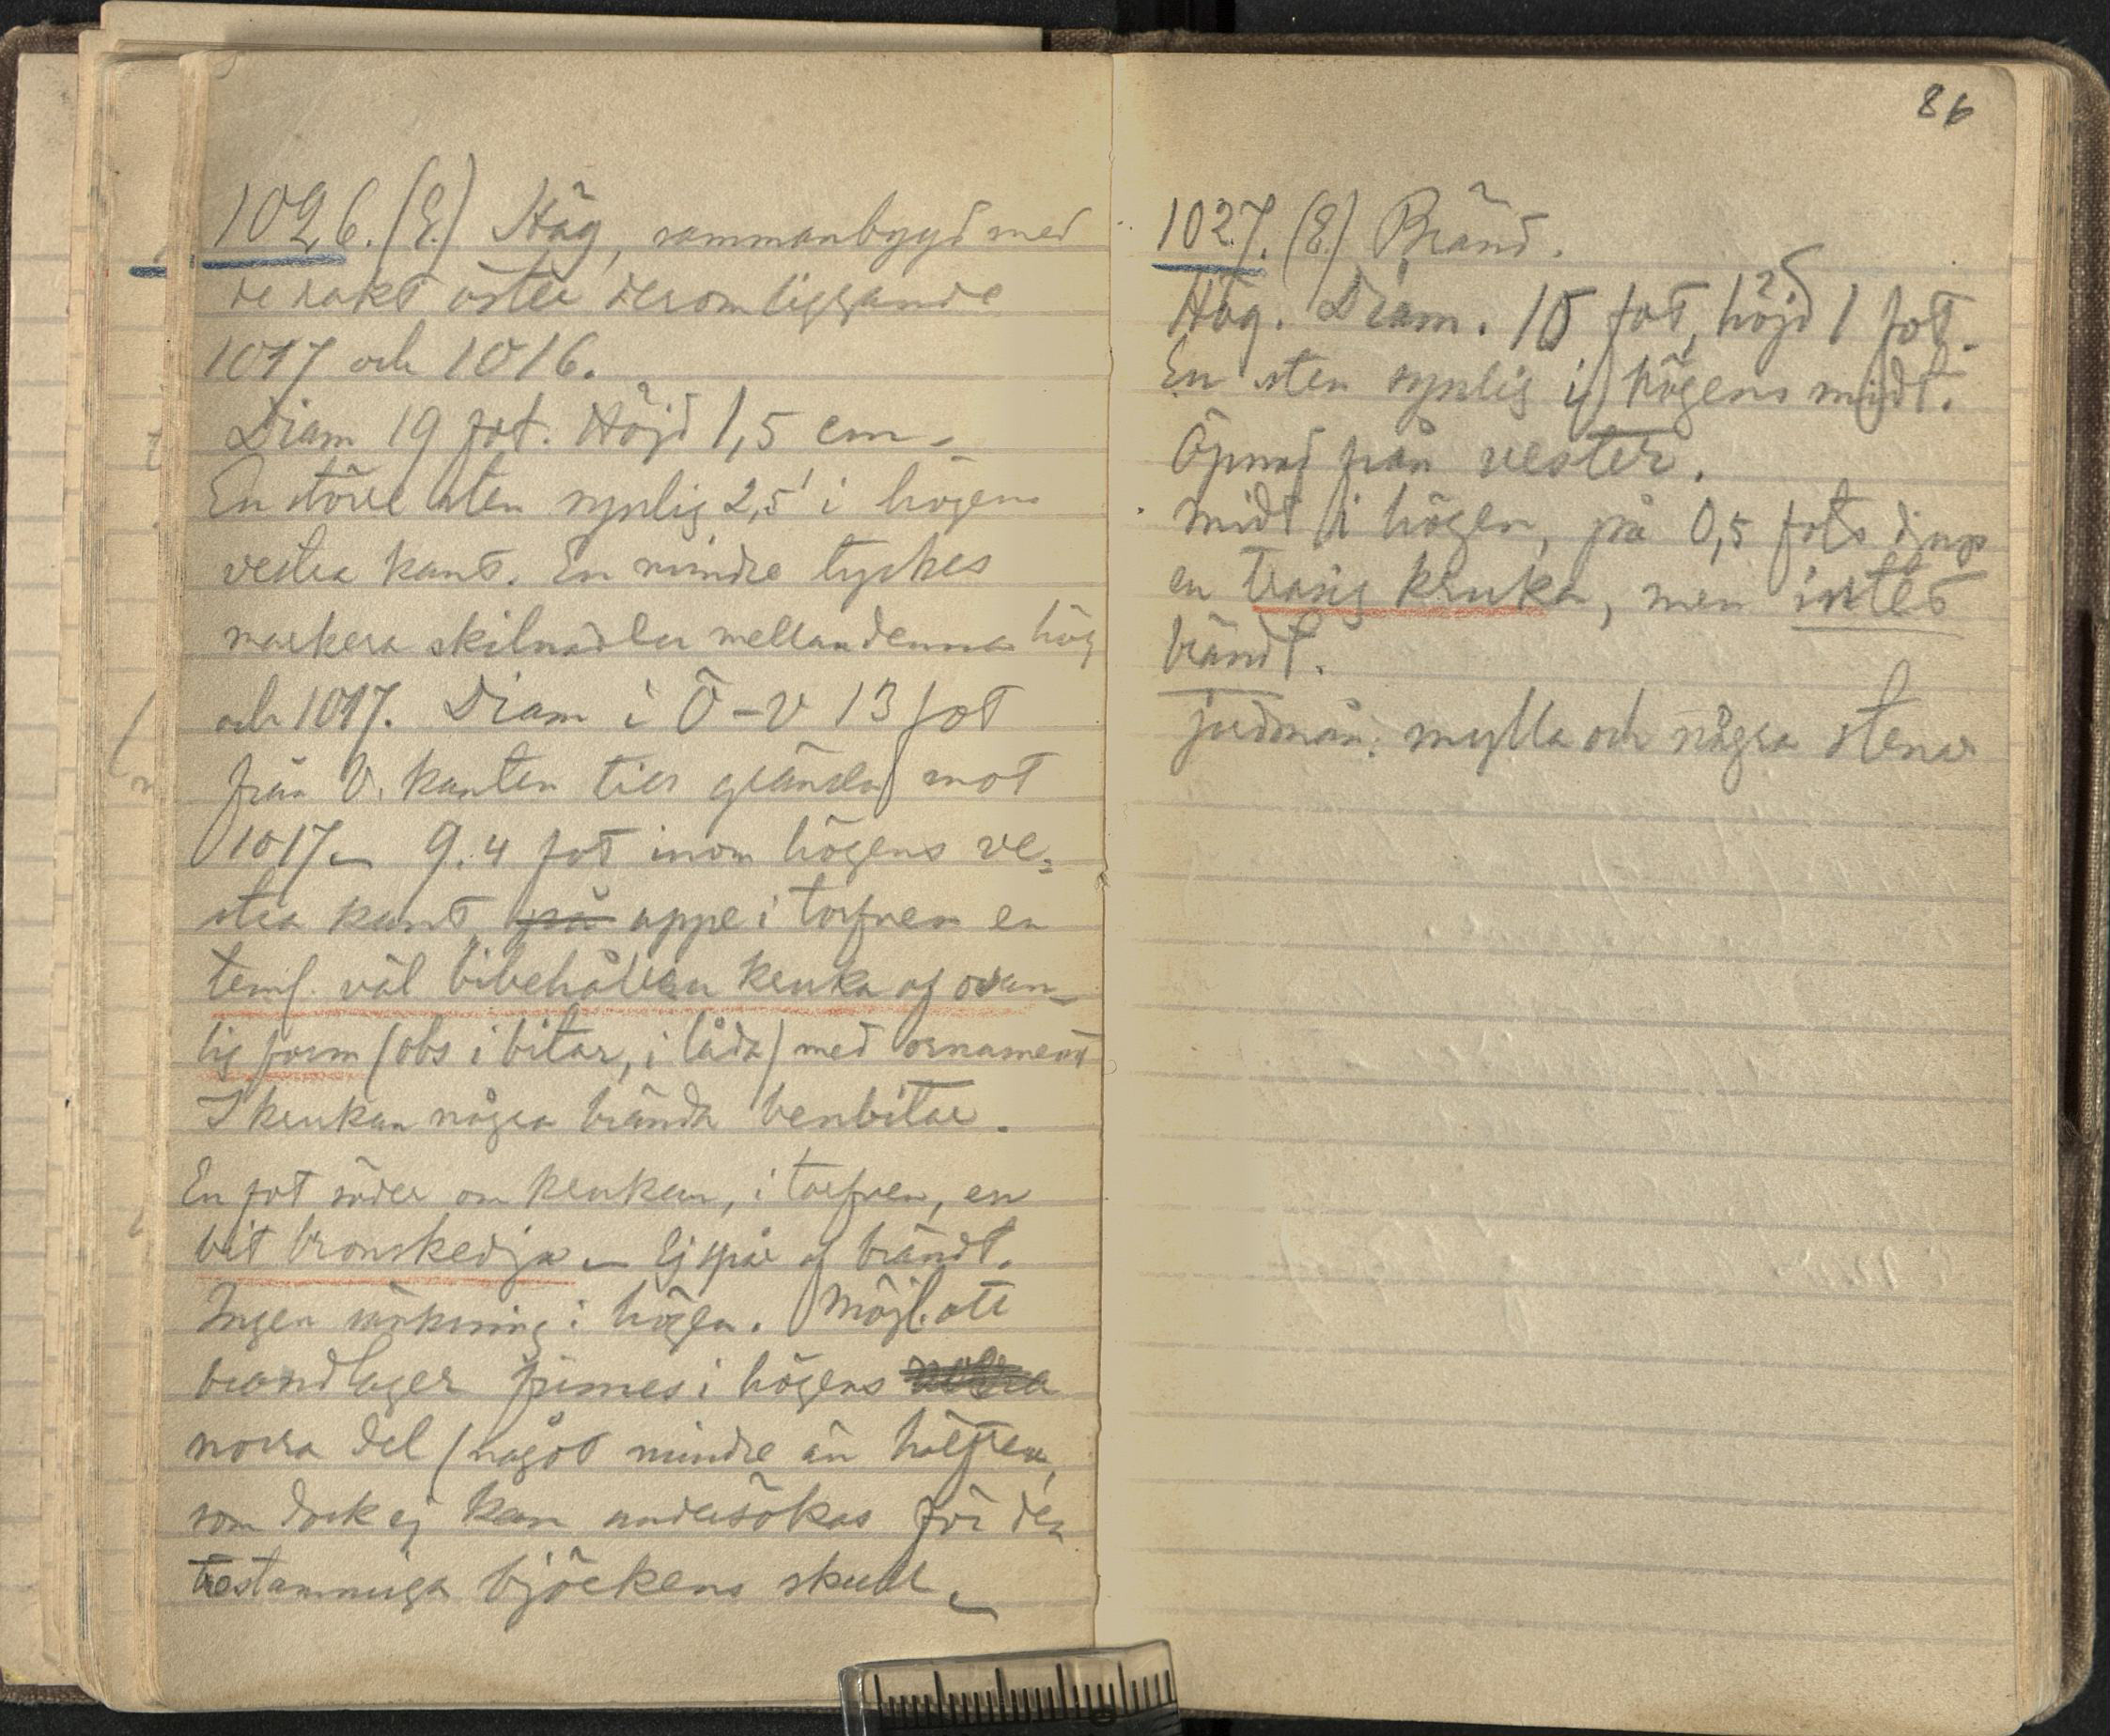 1026. (E.) Hög, sammanbygd med
de rakt öster derom liggande
1017 och 1016.
Diam 19 fot. Höjd 1,5 cm.
En större sten synlig 2,5' i högens
vestra kant. En mindre tyckes
markera skilnaden mellan denna hög
och 1017. Diam i Ö-V 13 fot
från V. kanten till gränsen mot
1017. 9.4 fot inom högens ve-
stra kant på uppe i torfven en
teml. väl bibehållen kruka af ovan-
lig form (obs i bitar, i låda) med ornament
I krukan några brända benbitar.
En fot söder om krukan, i torfven, en
bit bronskedja. Ej spår af brändt.
Ingen sänkning i högen. Möjl. att
brandlager finnes i högens
norra del (något mindre än hälften,
som dock ej kan undersökas för den
trestammiga björkens skull.
86
1027. (E.) Bränd.
Hög. Diam. 15 fot, höjd 1 fot.
En sten synlig i högens midt.
Öpnad från vester.
Midt i högen, på 0,5 fots djup
en trasig kruka, men intet
brändt.
jordmån: mylla och några stenar